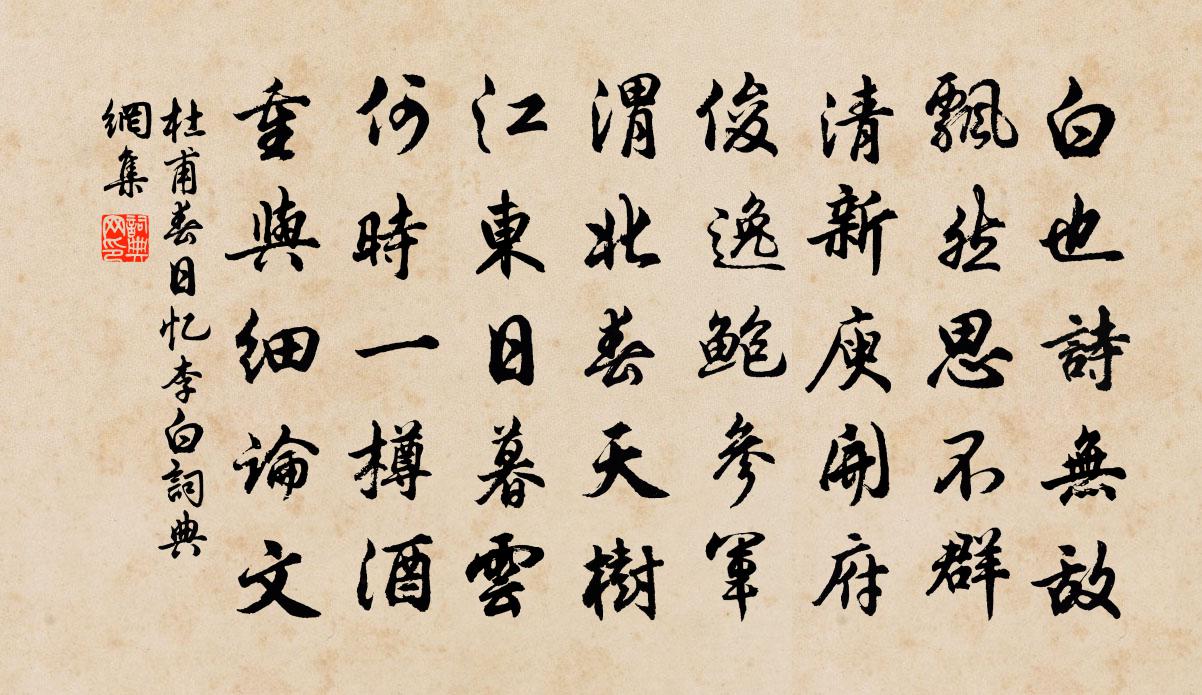 白也詩無敌
飄然思不群
清新庾開府
俊逸鮑參軍
渭北春天樹
江東日暮雲
何時一樽酒
重與細論文
杜甫春日忆李白詞典
網集
詞典
网印